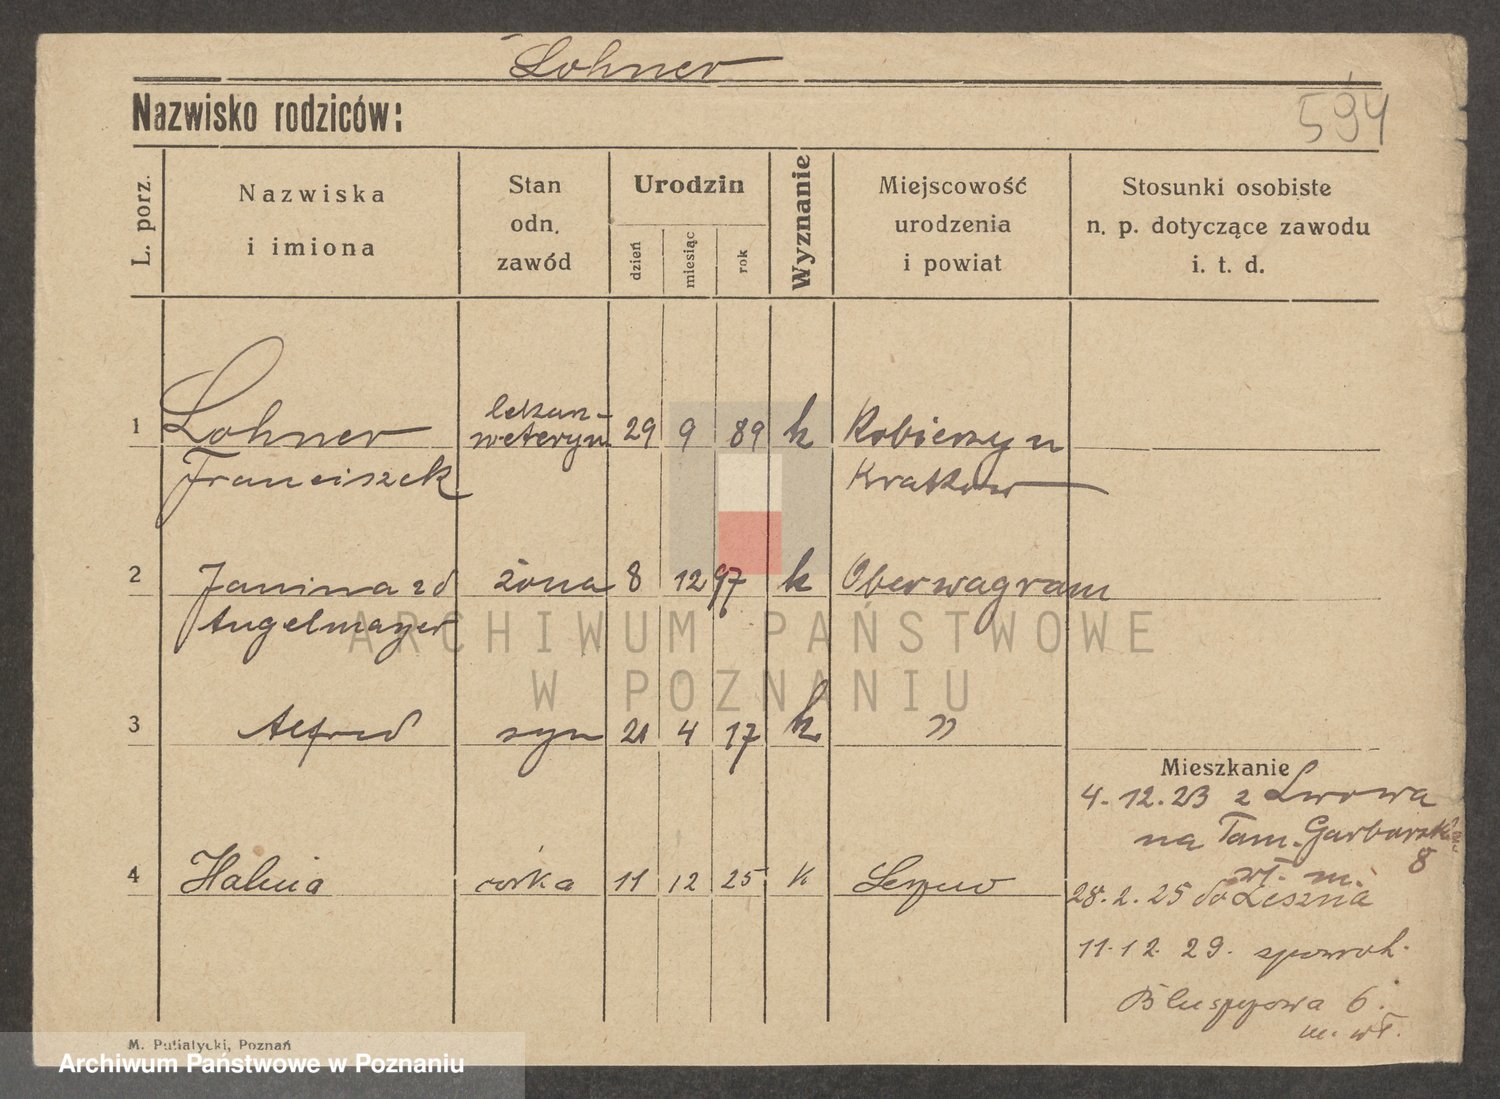 Lohner
Nazwisko rodziców:
594
L. porz.
Nazwiska
i imiona
Stan
odn.
zawód
Urodzin
dzień
miesiąc
rok
Wyznanie
Miejscowość
urodzenia
i powiat
Stosunki osobiste
n. p. dotyczące zawodu
i. t. d.
1 Lohner
Franciszek
lekarz-
weteryn
29 9 89 k Kobierzyn
Kraków
2 Janina zd żona 8 12 97 k Oberwagram
Angelmayer
3 Alfred syn 21 4 17 k "
Mieszkanie
4.12.23 z Lwowa
na Tam. Garbarską
8
wł. m.
4 Halina córka 11 12 25 k Leszno
28.2.25 do Leszna
11.12.29. spowrot.
6.
m. wł.
M. Putiatycki, Poznań
ARCHIWUM PAŃSTWOWE
W POZNANIU
Archiwum Państwowe w Poznaniu